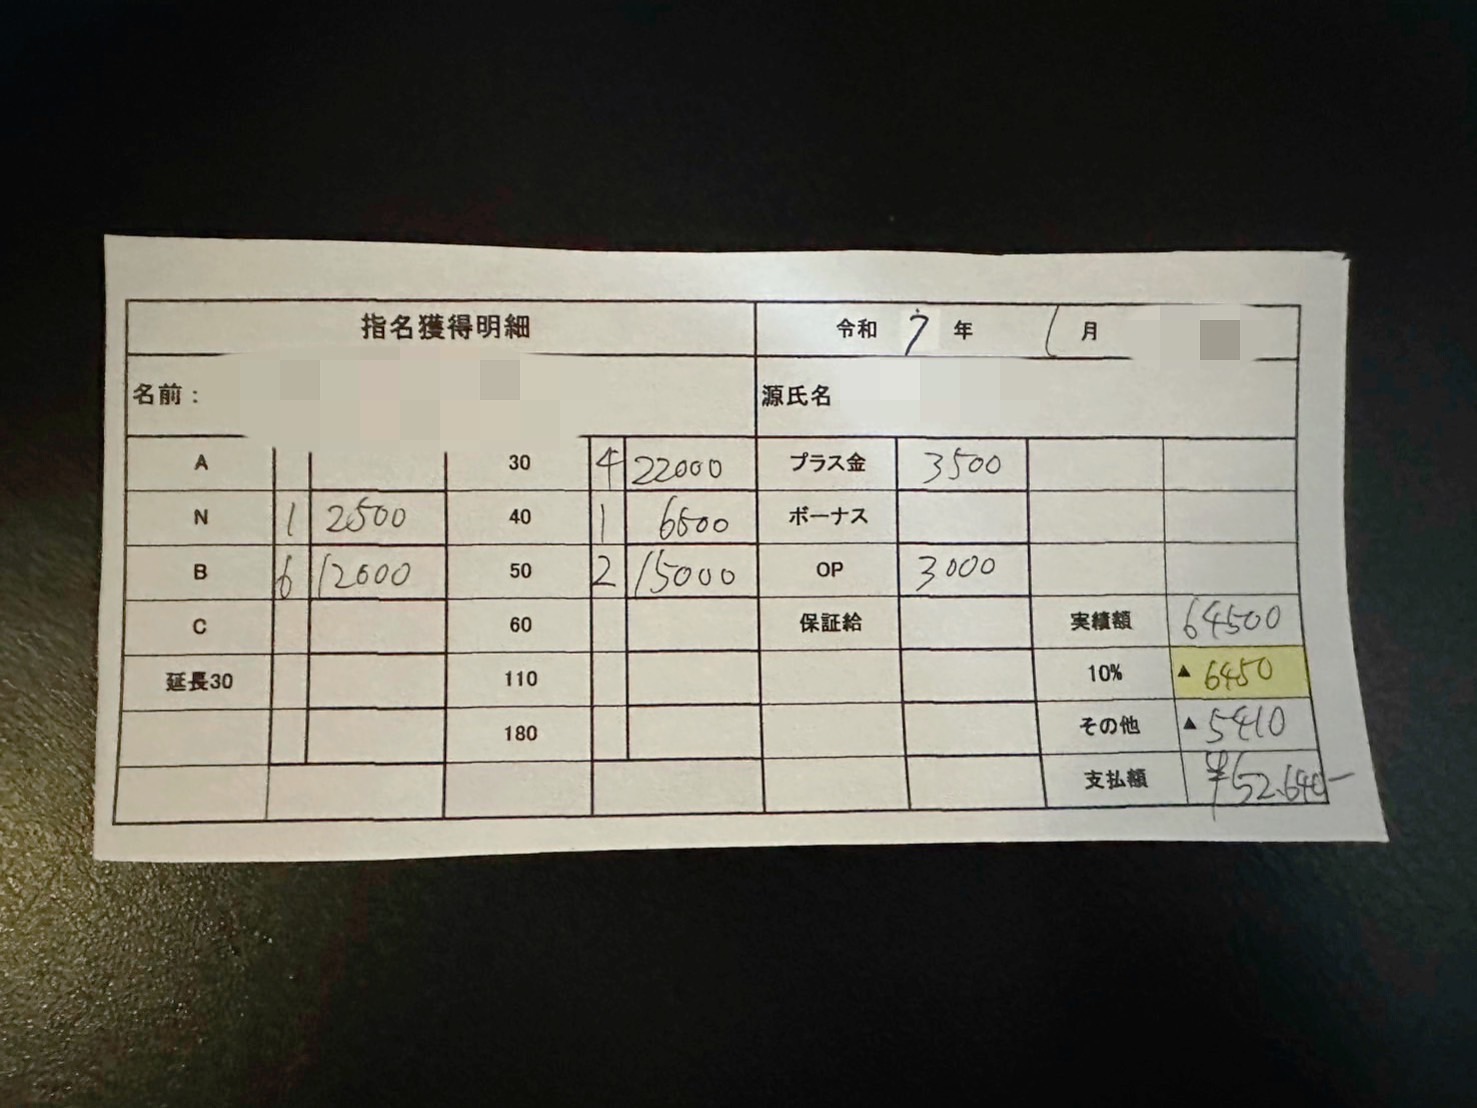 指名獲得明細 令和 7 年 1 月
名前： 源氏名
A 30 4 22000 プラス金 3500
N 1 2500 40 1 6500 ボーナス
B 6 12000 50 2 15000 OP 3000
C 60 保証給 実績額 64500
延長30 110 10% ▲ 6450
180 その他 ▲ 5410
支払額 ¥52.640-